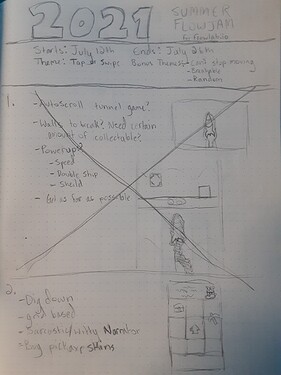 2021
SUMMER
FLOWJAM
Starts: July 12th Ends: July 26th
Theme: Tap or Swipe Bonus Themes - Can't stop moving
- Random
1.
- AutoScroll tunnel game?
- Walls to break? Need certain
amount of collectable?
- Powerups?
- Speed
- Double ship
- Sheild
- Go as far as possible
2.
- Dig down
- grid based
- Sarcastic/witty Narrator
- Buy pickaxe skins